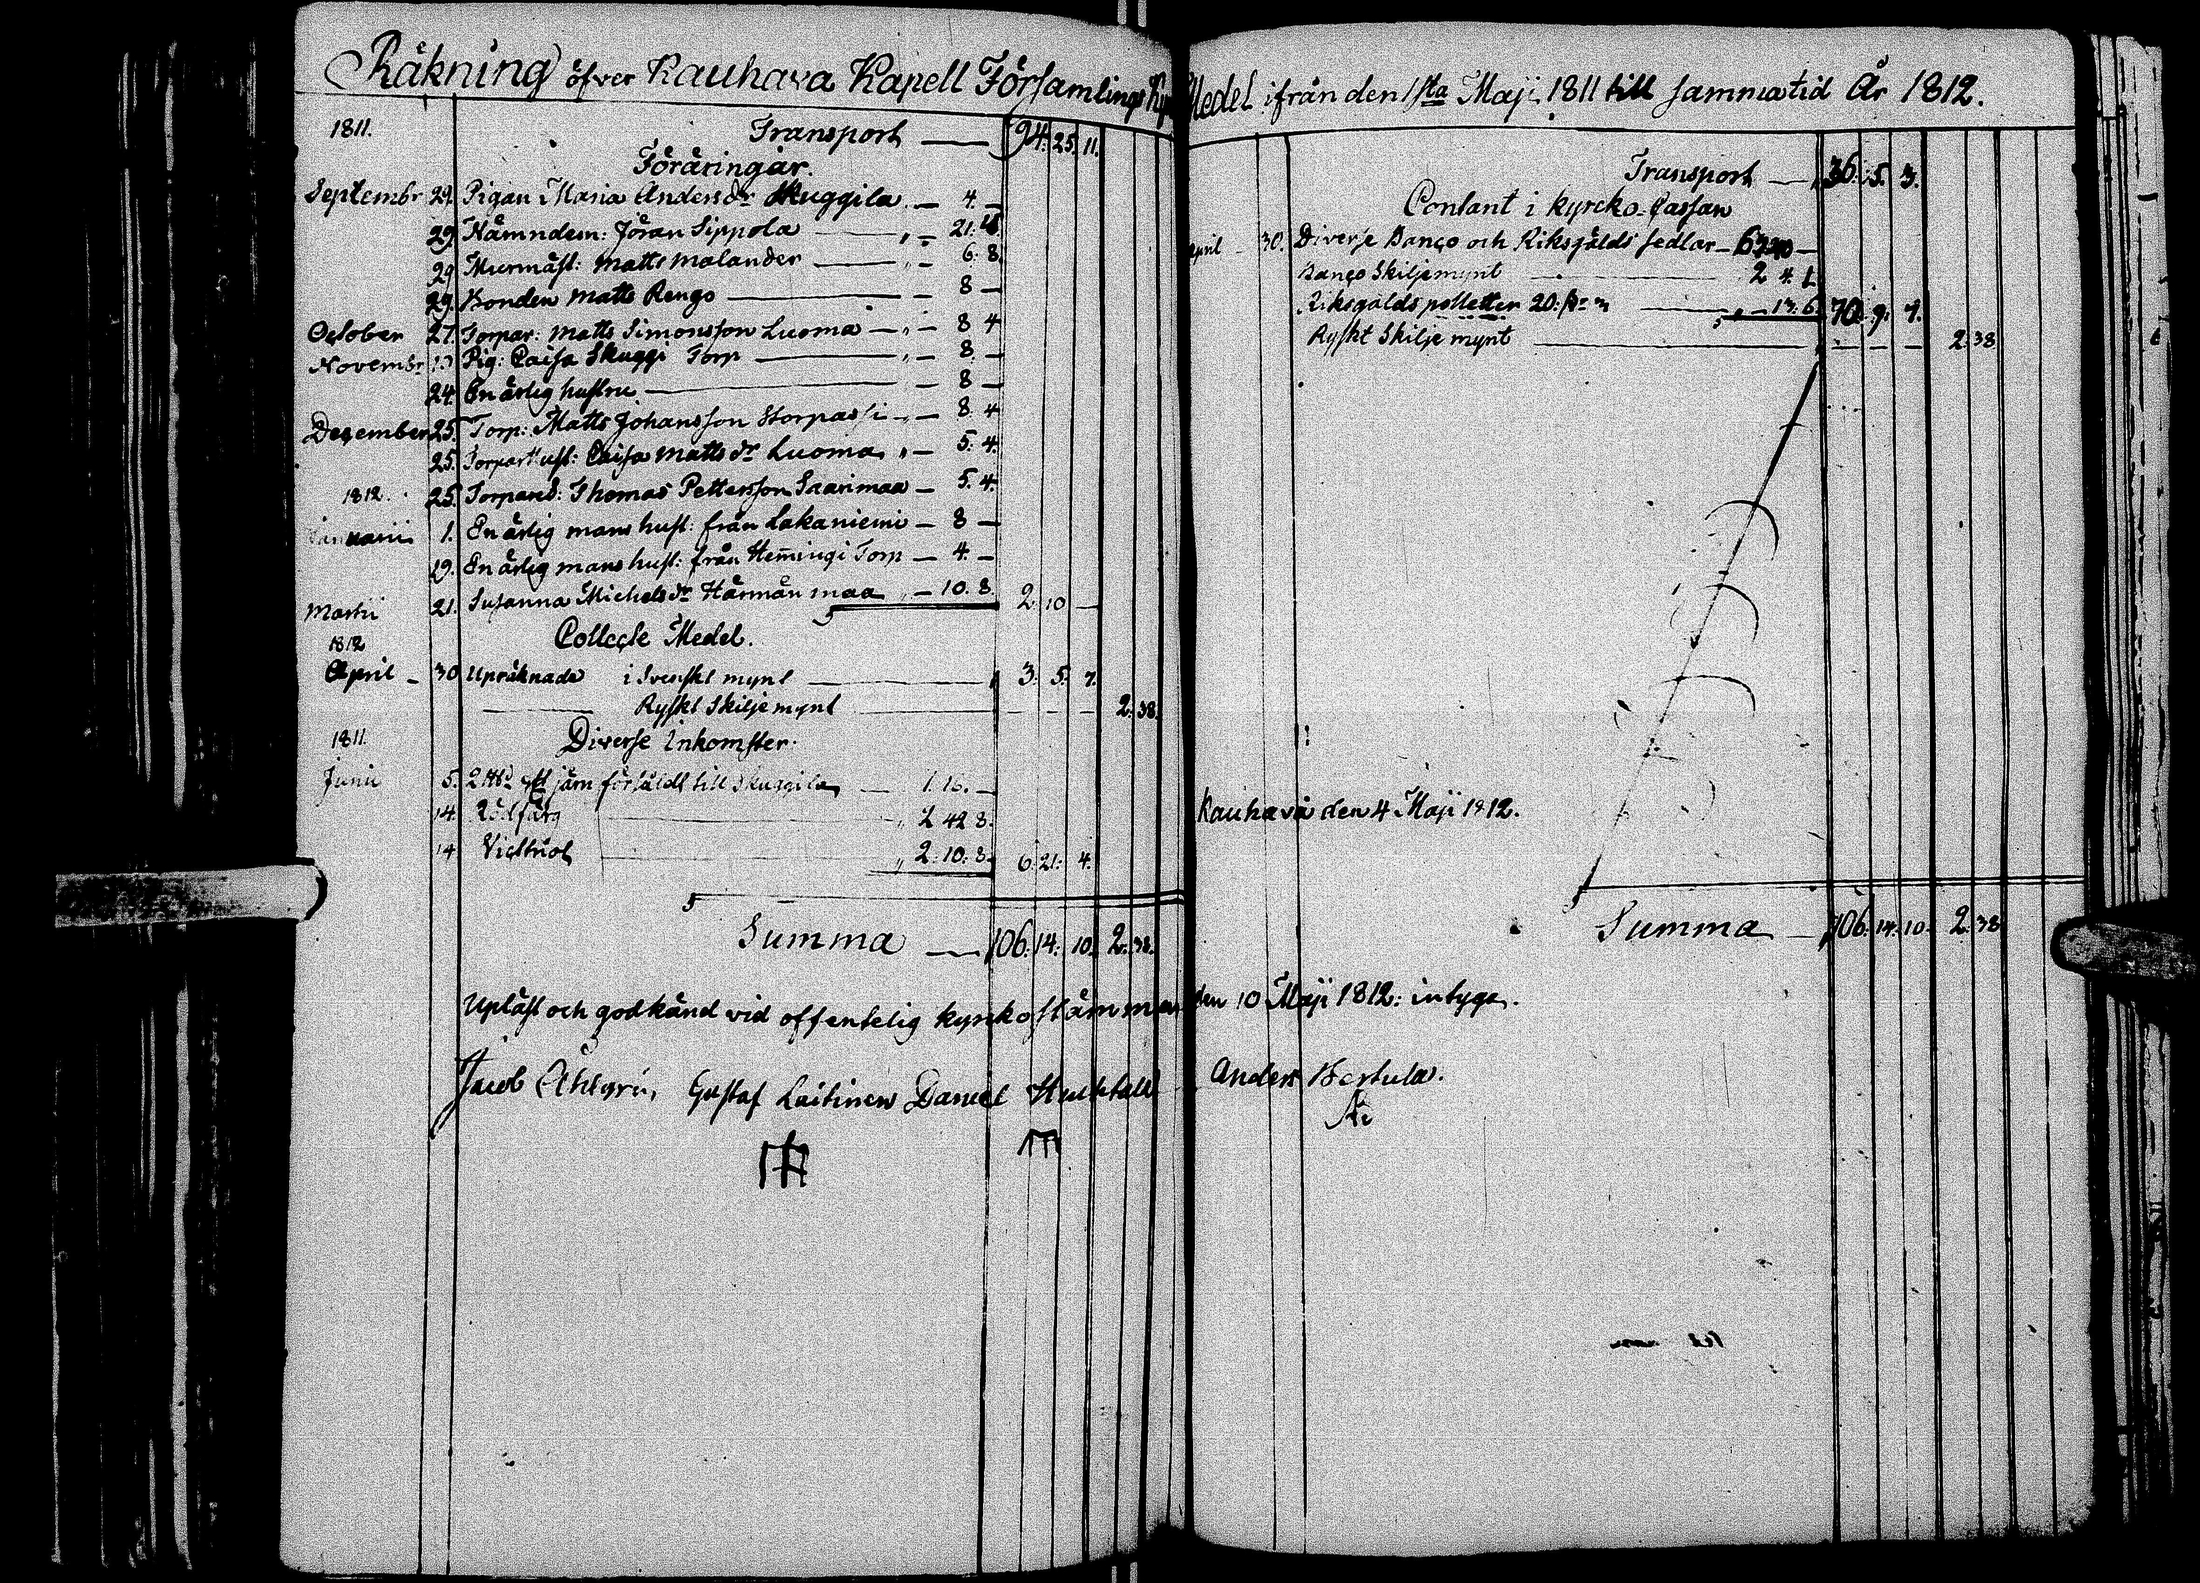 Räkning öfver Kauhava Kapell Församlings Kyr
1811. Transport — 94. 25. 11.
Föräringar.
Septembr 29. Pigan Maria Andersdr Skuggila — 4. —
29. Nämndem: Jöran Sippola — 21. 4
29 Murmäst: Matts Malander — 6. 8.
29. Bonden Matts Rengo — 8 —
October 27. Torpar: Matts Simonsson Luoma — 8 4
Novembr Pig: Caisa Skuggi Torp — 8. —
24. En ärlig hustru — 8 —
December 25. Torp: Matts Johansson Storpassi — 8. 4
25. Torpar hust: Caisa Mattsdr Luoma — 5. 4.
1812. 25. Torpares: Thomas Pettersson Saarimaa — 5. 4.
Januarii 1. En ärlig mans hust: från Lakaniemi — 8 —
19. En ärlig mans hust: från Hemingi Torp — 4. —
Martii 21. Susanna Michelsdr Härmän maa — 10. 8. 2. 10 —
1812 Collecte Medel.
April 30 Upräknade i Svenskt mynt — 3. 5. 7.
Ryskt Skiljemynt — 2. 38.
1811. Diverse Inkomster.
Junii 5. 2 järn försåldt till Skuggila — 1. 16. —
14. Rödfärg 2 42 8.
14 Victriol 2. 10. 8. 6. 21. 4.
Summa — 106. 14. 10. 2. 38.
Upläst och godkänd vid offentelig kyrkostämma
Jacob Åhlgrén, Gustaf Laitinen Daniel Huhtala
Medel ifrån den 1sta Maji 1811 till samma tid År 1812.
Transport — 36. 5. 3.
Contant i kyrcko-Cassan
April 30. Diverse Banco och Riksgälds sedlar —
Banco Skiljemynt 2 4. 1.
Riksgälds polletter 20: — 13. 6 70. 9. 7.
Ryskt Skiljemynt — — — 2. 38
Kauhava den 4 Maji 1812.
Summa — 106. 14. 10. 2. 38
den 10 Maji 1812: intyga.
Anders Bertula.